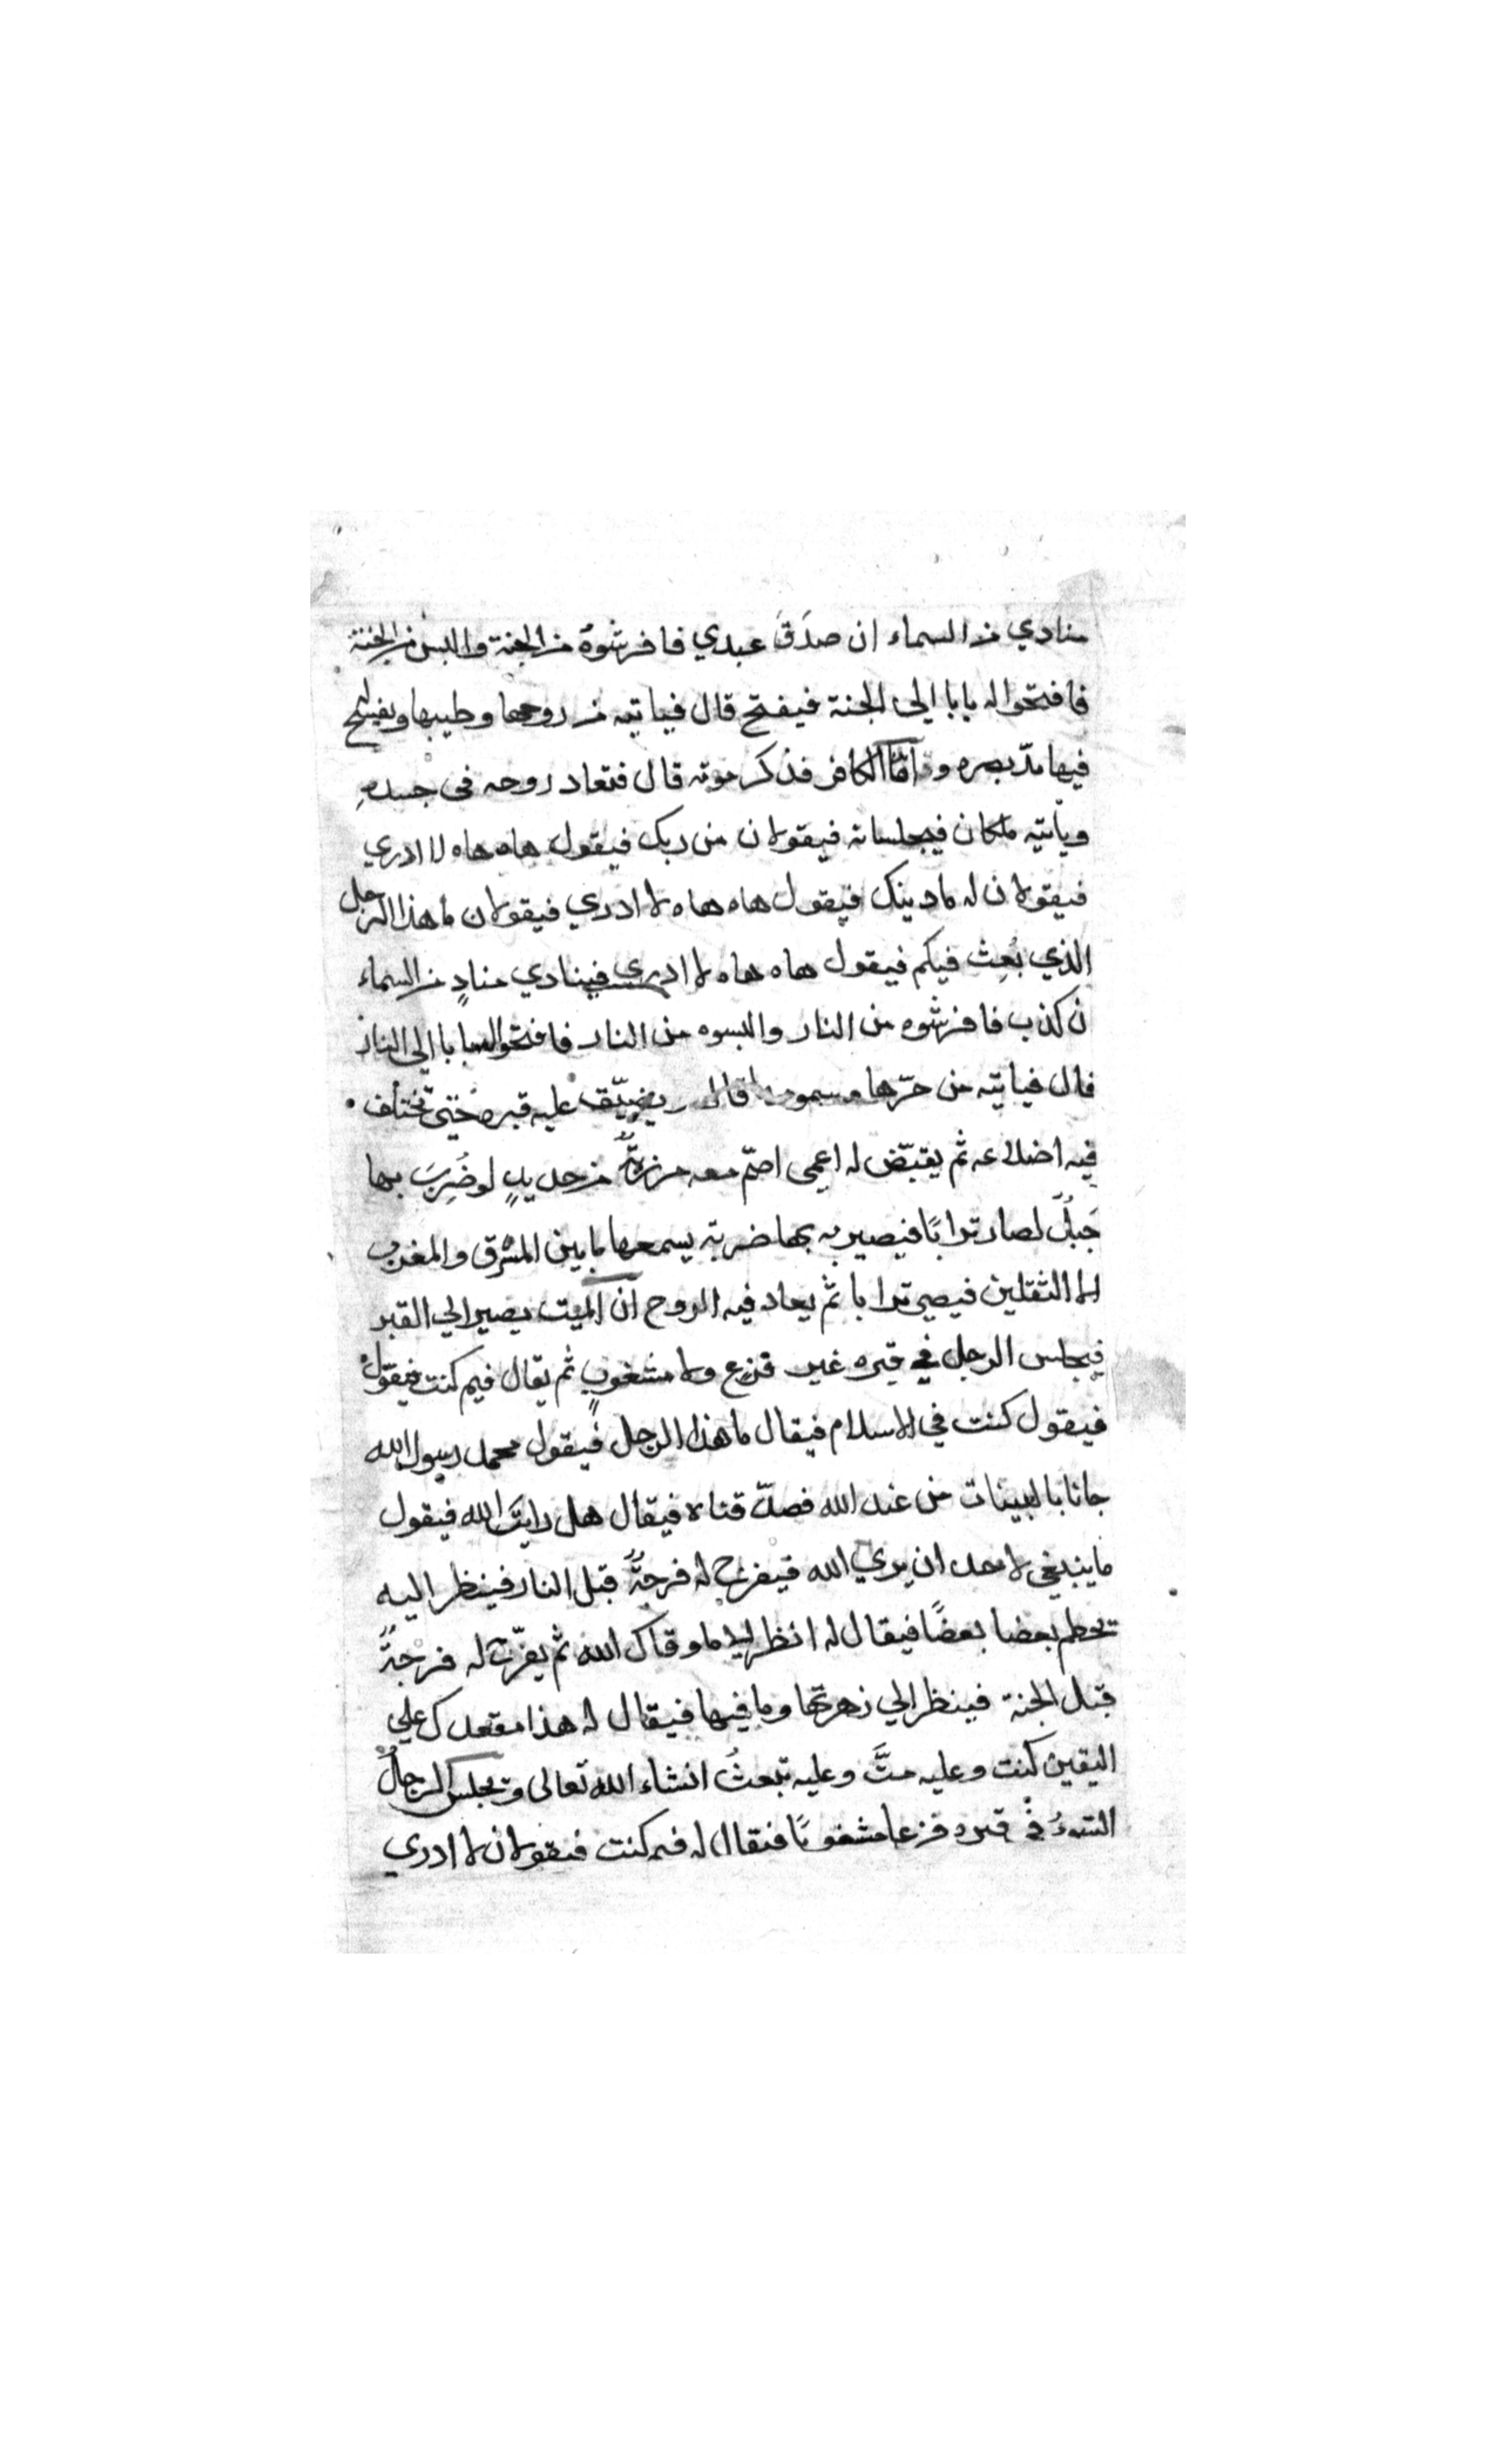 منادي من السماء ان صدَقَ عبدي فافرشوهُ من الجنة والبس من الجنة
فافتحواله بابا الى الجنة فيفتح قال فياتيه من روحها وطيبها ويفسح
فيها مدّ بصره و امّا الكافر فذكر موته قال فتعاد روحه فى جسدهِ
ويأتيه ملكان فيجلسانه فيقولان من ربك فيقول هاه هاه لا ادري
فيقولان له مادينك فيقول هاه هاه لا ادري فيقولان ما هذا الرجل
الذي بُعِث فيكم فيقول هاه هاه لا ادري فينادي منادٍ من السماء
ان كذب فافرشوه من النار والبسوه من النار فافتحواله بابا الى النار
قال فياتيه من حرّها وسمومها قال ويضيّق عليه قبره حتى تختلف
فيه اضلاعه ثم يقبّض له اعمى اصمّ معه مرزبةٌ من حديدٍ لو ضُرِبَ بها
جَبلٌ لصار ترابًا فيصيربه بها ضربة يسمعها ما بين المشرق والمغرب
الا الثقلين فيصي ترابا ثم يعاد فيه الروح ان الميت يصير الي القبر
فيجلس الرجل في قبره غير فزع ولا مشغوبٍ ثم يقال فيم كنت فيقول
فيقول كنت في الاسلام فيقال ما هذا الرجل فيقول محمد رسول الله
جانا بالبينات من عند الله فصدّقناه فيقال هل رايتَ الله فيقول
ما ينبغي لاحد ان يري الله فيفرج له فرجةٌ قبل النار فينظر اليه
تحطم بعضا بعضًا فيقال له انظر الى ما وقاك الله ثم يفرّج له فرجةٌ
قبل الجنة فينظر الي زهرتها وما فيها فيقال له هذا مقعدك علي
اليقين كنت وعليه متَّ وعليه تبعثُ انشاء الله تعالى ويجلس الرجلُ
السوءُ في قبره فزعا مشغوبًا فيقال له فيم كنت فيقولان لا ادري